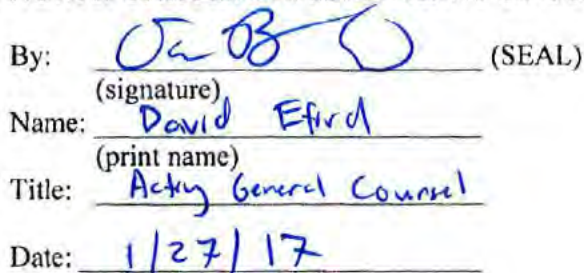 By: (SEAL)
(signature)
Name: David Efird
(print name)
Title: Acting General Counsel
Date: 1/27/17